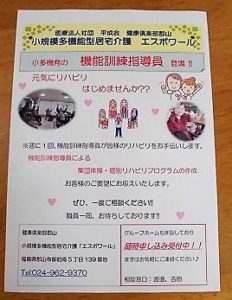 医療法人社団 平成会 健康倶楽部郡山
小規模多機能型居宅介護 エスポワール
小多機発の 機能訓練指導員 登場!!
元気にリハビリ
はじめませんか??
※週に1回、機能訓練指導員が皆様のリハビリをお手伝いします。
機能訓練指導員による
集団体操・個別リハビリプログラムの作成
お客様のご要望にお応えいたします。
ぜひ、一度ご相談ください!!
職員一同、お待ちしております!!
健康倶楽部郡山
小規模多機能型居宅介護「エスポワール」
福島県郡山市御前南5丁目139番地
Tel:024-962-9370
グループホームも併設しており
随時申し込み受付中!!
まずはお気軽にご連絡ください♪
相談窓口:渡邉、古田